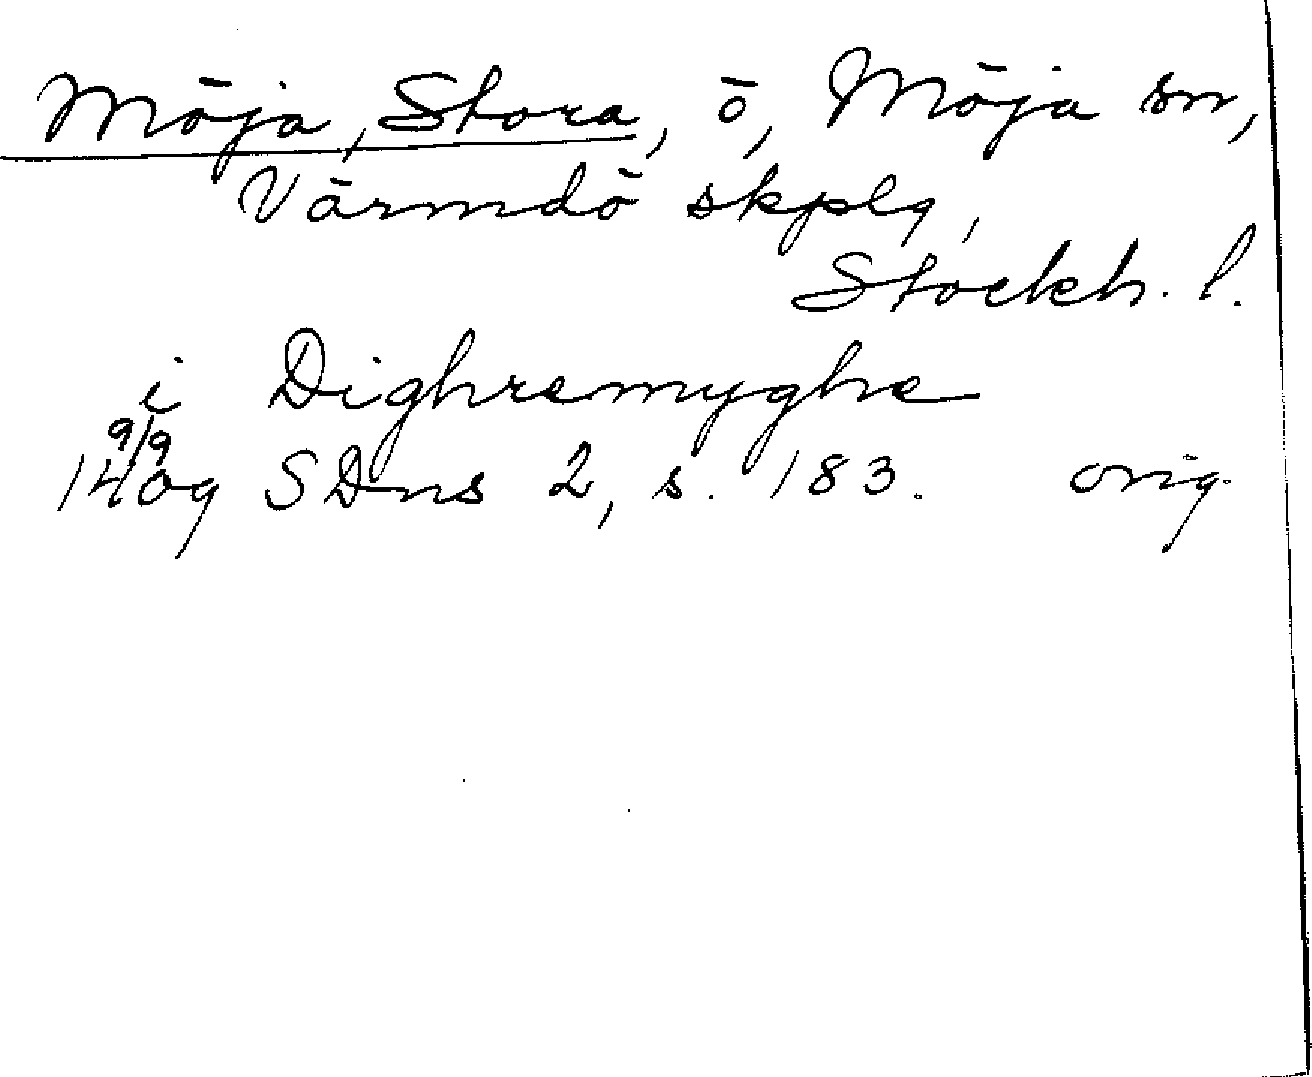 Möja, Stora, ö, Möja sn,
Värmdö skplg,
Stockh. l.
i Dighremyghe
9/9
1409 SDns 2, s. 183. orig.